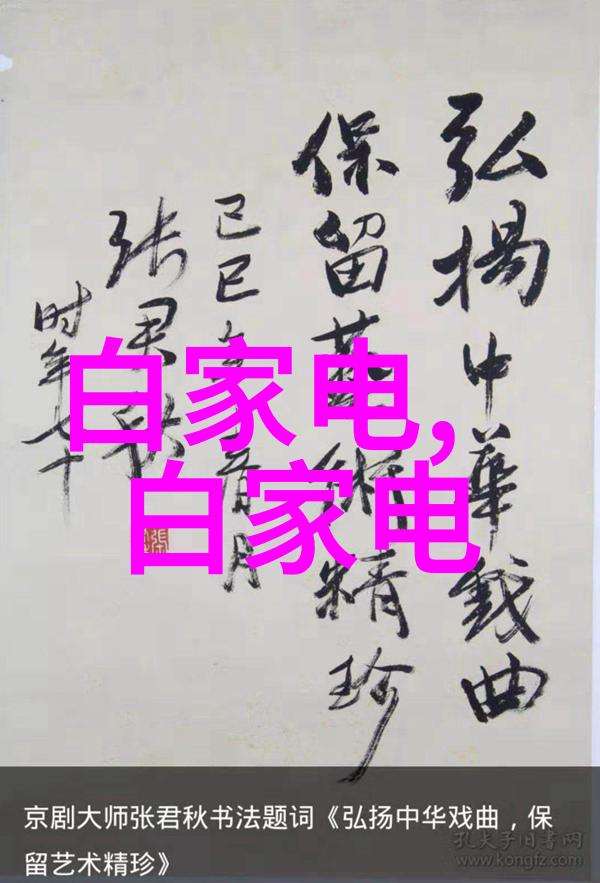 弘揚中华戏曲
保留艺术精珍
己巳年春月
张君秋
时年七十
白家电,
白家电
京剧大师张君秋书法题词《弘扬中华戏曲，保
留艺术精珍》
孔夫子旧书网
www.kongfz.com